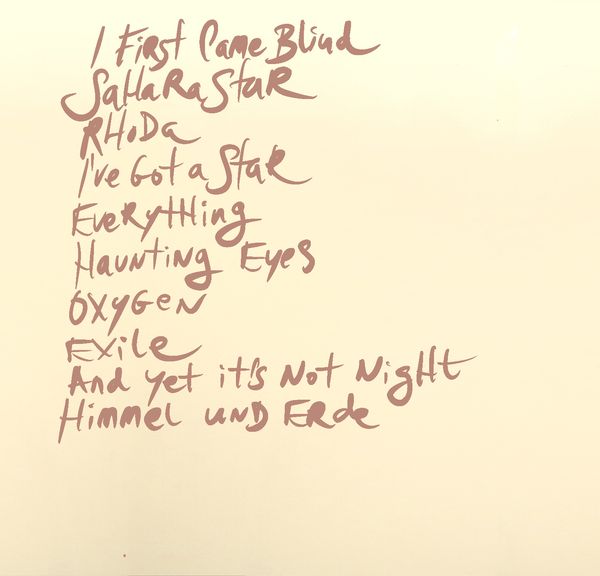 I First Came Blind
Sahara Star
Rhoda
I've Got a Star
Everything
Haunting Eyes
Oxygen
Exile
And yet it's Not Night
Himmel und Erde